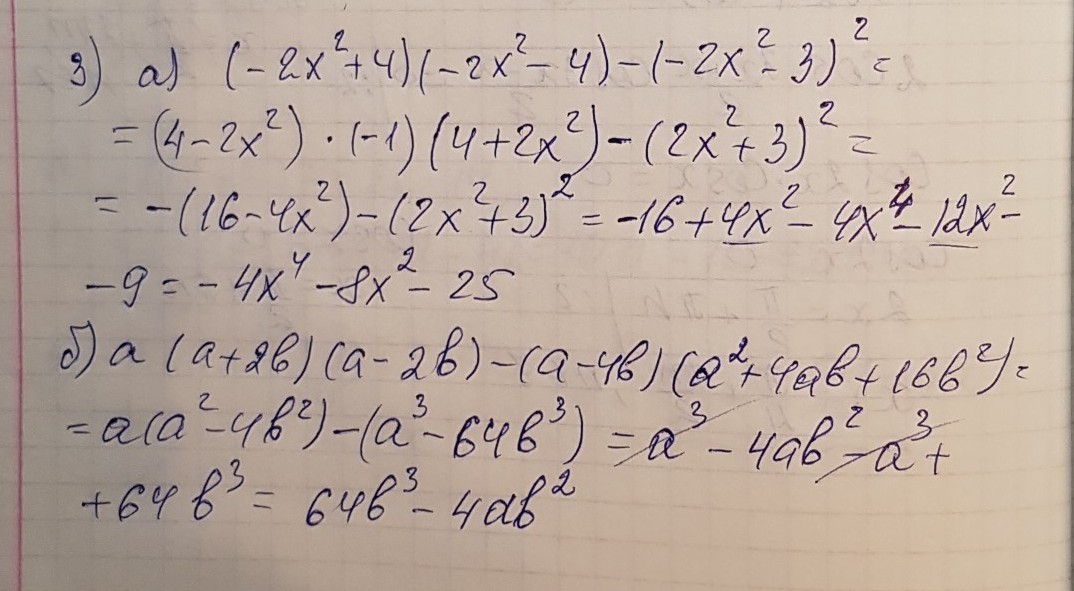 3) а) (-2x²+4)(-2x²-4)-(-2x²-3)²=
=(4-2x²)·(-1)(4+2x²)-(2x²+3)²=
= -(16-4x²)-(2x²+3)²=-16+4x²-4x⁴-12x²-
-9=-4x⁴-8x²-25
б) a(a+2b)(a-2b)-(a-4b)(a²+4ab+16b²)=
=a(a²-4b²)-(a³-64b³)=a³-4ab²-a³+
+64b³= 64b³-4ab²